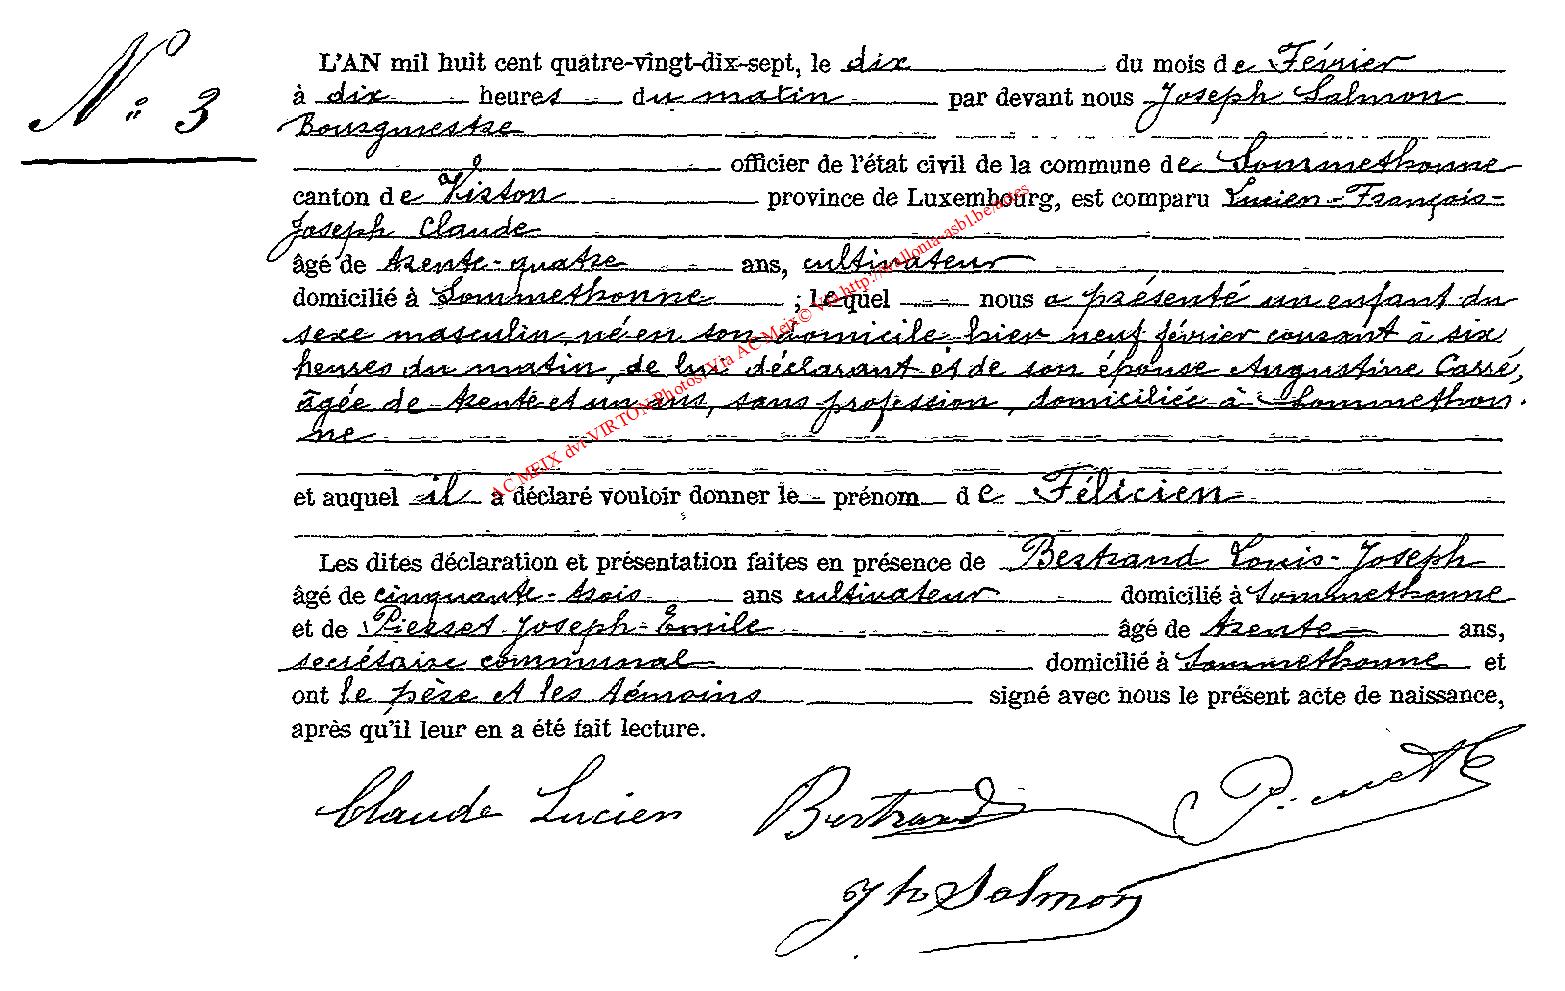 N° 3
L'AN mil huit cent quatre-vingt-dix-sept, le dix du mois de Février
à dix heures du matin par devant nous Joseph Salmon
Bourgmestre
officier de l'état civil de la commune de Sommethonne
canton de Virton province de Luxembourg, est comparu Lucien-François-
Joseph Claude
âgé de trente-quatre ans, cultivateur
domicilié à Sommethonne ; lequel nous a présenté un enfant du
sexe masculin, né en son domicile, hier neuf février courant à six
heures du matin, de lui déclarant et de son épouse Augustine Carré,
âgée de trente et un ans, sans profession, domiciliée à Sommethon-
ne
et auquel il a déclaré vouloir donner le prénom de Félicien
Les dites déclaration et présentation faites en présence de Bertrand Louis-Joseph
âgé de cinquante-trois ans cultivateur domicilié à Sommethonne
et de Pierret Joseph-Emile âgé de trente ans,
secrétaire communal domicilié à Sommethonne et
ont le père et les témoins signé avec nous le présent acte de naissance,
après qu'il leur en a été fait lecture.
Claude Lucien Bertrand
Jh Salmon
AC MEIX dvt VIRTON Photos: Via AC Meix© Via http://wallonia-asbl.be/actes